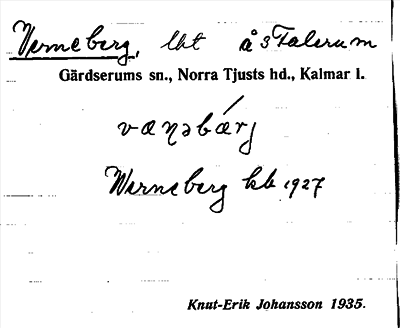 Verneberg, lht å 3 Falerum
Gärdserums sn., Norra Tjusts hd., Kalmar l.
væṇəbárj
Werneberg kb 1927
Knut-Erik Johansson 1935.